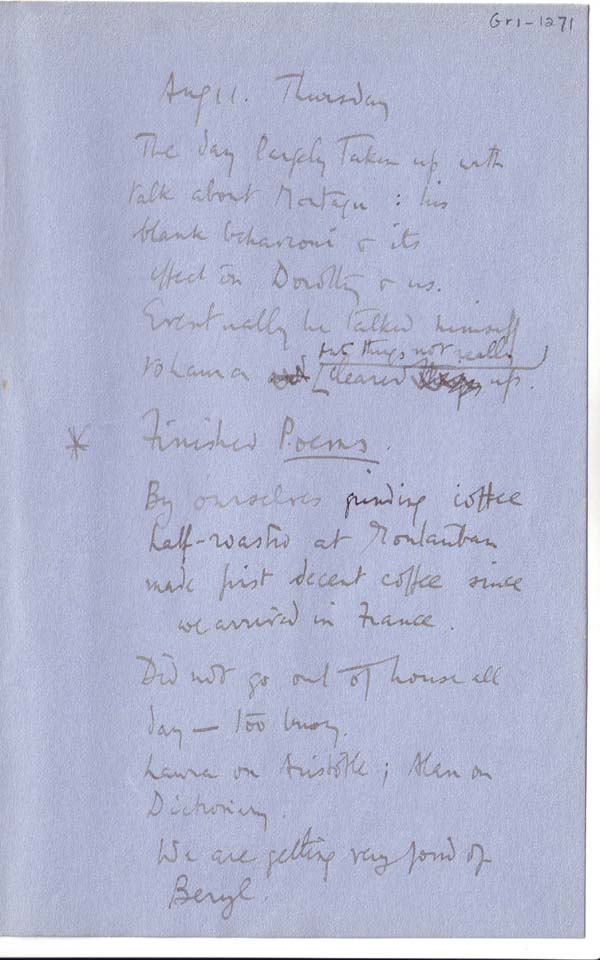 Gr1-1271
Aug 11. Thursday
The day largely taken up with
talk about Montagu : his
blank behaviour & its
effect on Dorothy & us.
Eventually he talked himself
but things not really
to Laura and [cleared things up.
* Finished Poems.
By ourselves grinding coffee
half-roasted at Montauban
made first decent coffee since
we arrived in France.
Did not go out of house all
day — too busy.
Laura on Aristotle ; Alan on
Dictionary.
We are getting very fond of
Beryl.